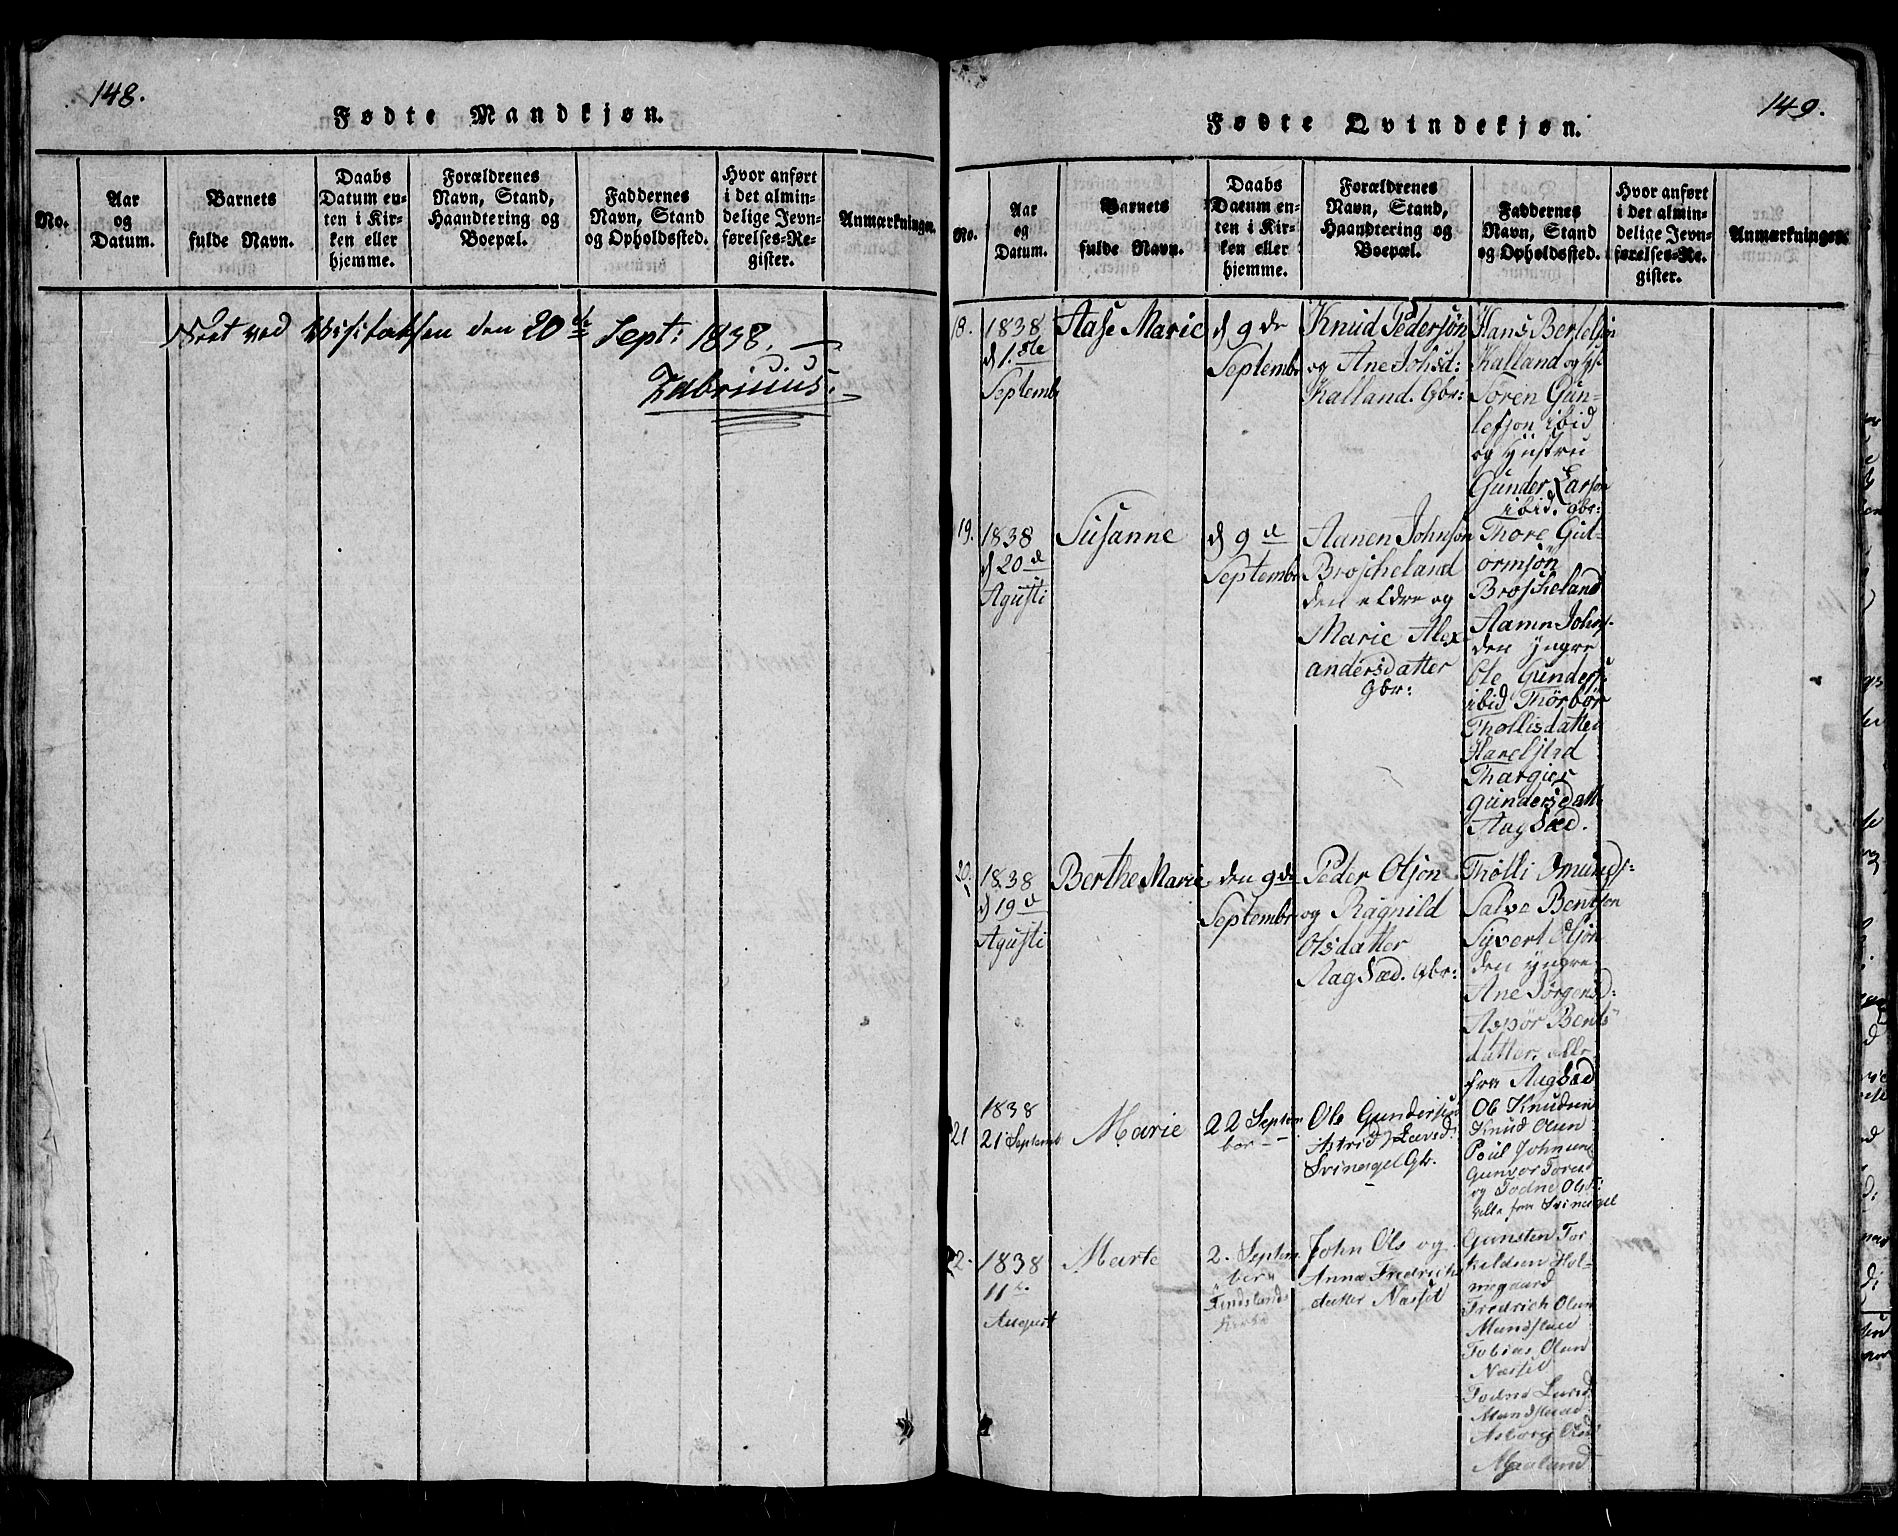 148.
Fødte Mandkjøn.
No.
Aar
og
Datum.
Barnets
fulde Navn.
Daabs
Datum en-
ten i Kir-
ken eller
hjemme.
Forældrenes
Navn, Stand,
Haandtering og
Boepæl.
Faddernes
Navn, Stand
og Opholdssted.
Hvor anført
i det almin-
delige Jevn-
førelses-Re-
gister.
Anmærkninger.
Seet ved Visitatsen den 20de Sept: 1838.
149.
Fødte Qvindekjøn.
No.
Aar
og
Datum.
Barnets
fulde Navn.
Daabs
Datum en-
ten i Kir-
ken eller
hjemme.
Forældrenes
Navn, Stand,
Haandtering og
Boepæl.
Faddernes
Navn, Stand
og Opholdssted.
Hvor anført
i det almin-
delige Jevn-
førelses-Re-
gister.
Anmærkninger.
18.
1838
d 1ste
Septembr
Aase Marie
d 9de
Septembr
Knud Pedersøn
og Ane Johsd:
Kalland. Gbr:
Hans Bertelsøn
Kalland og
Søren Gun-
lefsøn ibid
og Hustru
Gunder Larson
ibid. gbr:
19.
1838
d 20de
Agusti
Susanne
d 9de
Septembr
Aanen Johnsøn
Broscheland
den eldre og
Marie Alex-
andersdatter
Gbr:
Thore Gut-
ormsøn
Broscheland
Aanen Johns.
den yngre
Ole Gunders:
ibid Thørbør
Thollisdatter
Thargier
Gundersdatt
Aagsæd.
20.
1838
d 19de
Agusti
Berthe Marie
den 9de
Septembr
Peder Olsøn
og Ragnild
Olsdatter
Aagsæd. Gbr:
Thølli Omunds:
Salve Bentson
Syvert Olsøn
den yngre
Ane Jørgensd:
Aspør Bents
datter, alle
fra Aagsæd
21
1838
21 Septemb
Marie
22 Septem
ber
Ole Gundersen
Astrid Larsd:
Svinegel Gb.
Ole Knudsen
Knud Olsen
Poul Johnsen
Gunvor Toresd
og Todne Olsd:
Alle fra Svinegel
22.
1838
11te
August
Marte
2. Septem
ber
Findslands
Kirke
John Ols og
Anna Fredrichs
datter Næsset
Gunsten Tor
kildsen Hol-
megaard
Fredrich Olsen
Mandstad
Tobias Olsen
Næsset
Todne Larsd.
Mandstad
Asborg Olsd